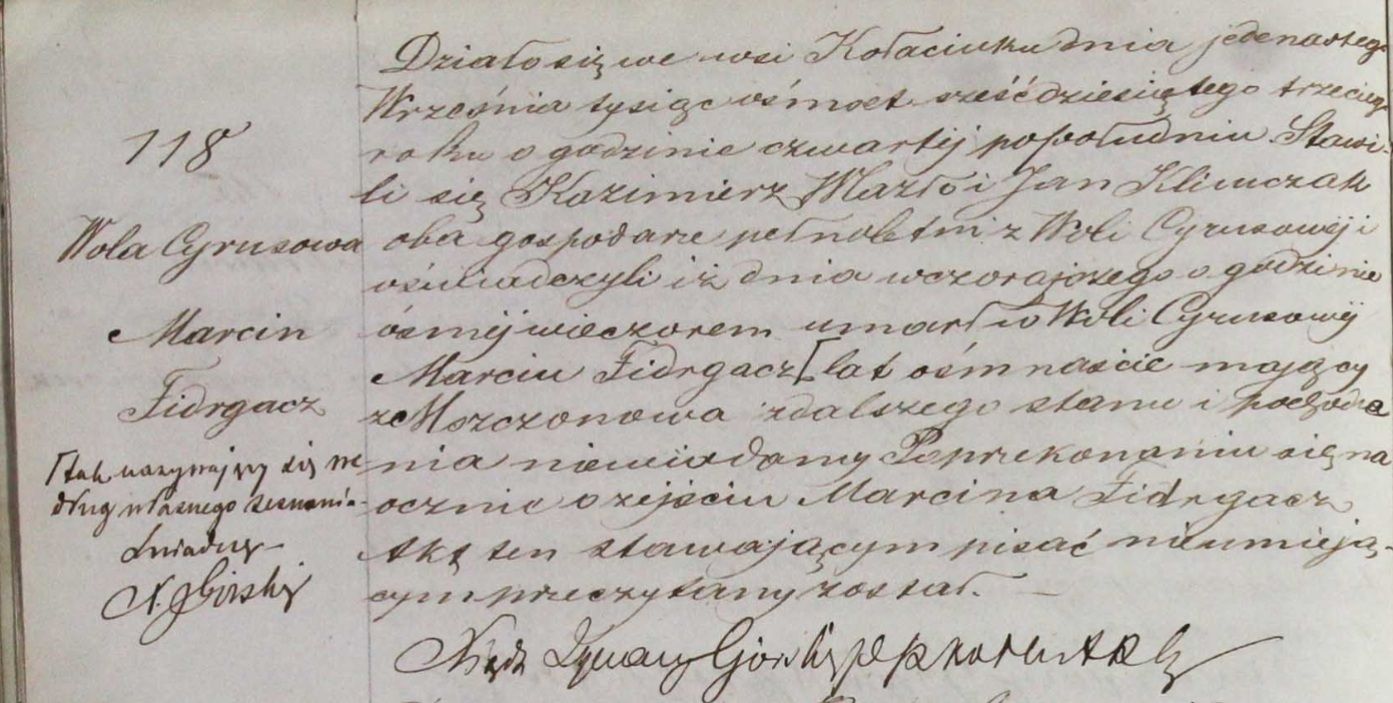 118
Wola Cyrusowa
Marcin
Fidrgacz
[tak nazywający się we
dług własnego zeznania
Świadczę
X. JGórski
Działo się we wsi Kołaciuku dnia jedenastego
Września tysiąc ośmset sześćdziesiętego trzeciego
roku o godzinie czwartej popołudniu. Stawi-
li się Kazimierz Mazło i Jan Klimczak
oba gospodarze pełnoletni z Woli Cyrusowej i
oświadczyli iż dnia wczorajszego o godzinie
ósmej wieczorem umarł w Woli Cyrusowej
Marcin Fidrgacz [lat ośmnaście mający
z Mszczonowa zdalszego stanu i pochodze
nia niewiadomy Po przekonaniu się na
ocznie o zejściu Marcina Fidrgacz
Akt ten stawającym pisać nieumieją-
cym przeczytany został. —
Xiądz Ignacy Górski